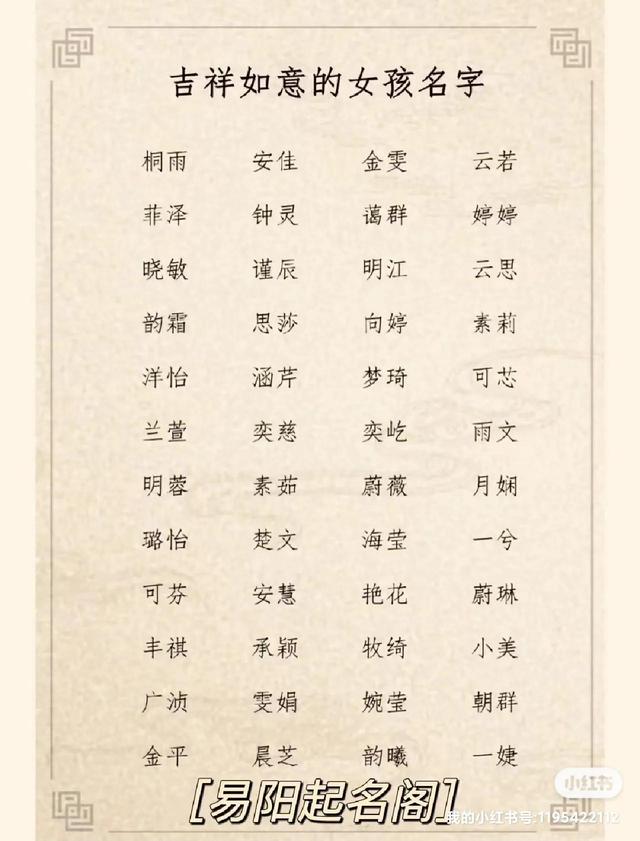 吉祥如意的女孩名字
桐雨 安佳 金雯 云若
菲泽 钟灵 蔼群 婷婷
晓敏 谨辰 明江 云思
韵霜 思莎 向婷 素莉
洋怡 涵芹 梦琦 可芯
兰萱 奕慈 奕屹 雨文
明蓉 素茹 蔚薇 月娴
璐怡 楚文 海莹 一兮
可芬 安慧 艳花 蔚琳
丰祺 承颖 牧绮 小美
广浈 雯娟 婉莹 朝群
金平 晨芝 韵曦 一婕
小红书
[易阳起名阁]
我的小红书号:1195422112